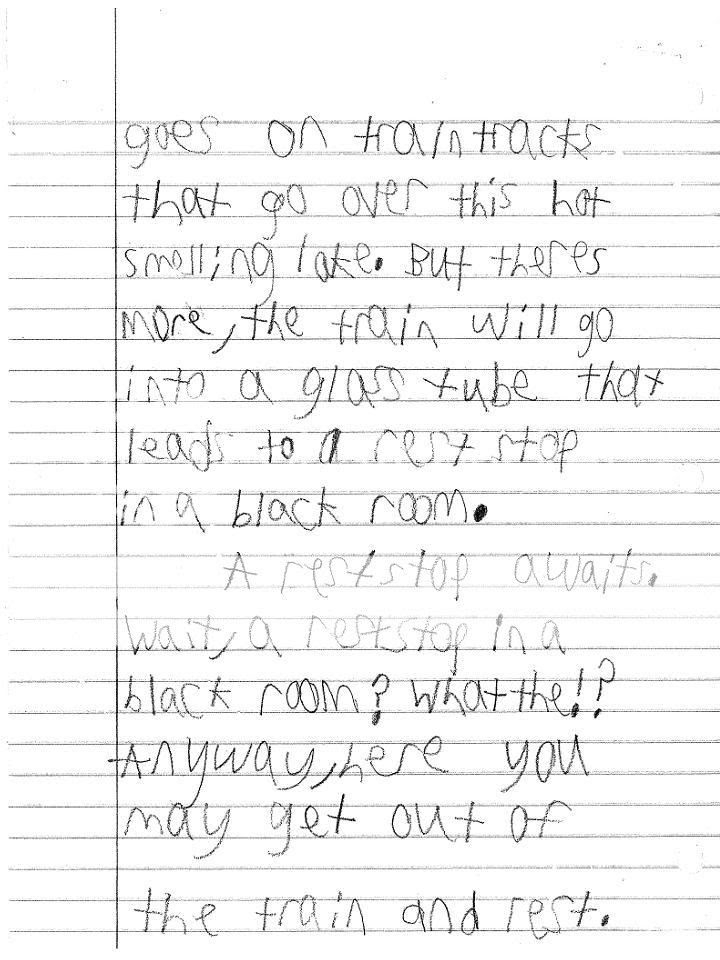 goes on train tracks
that go over this hot
smelling lake. But theres
more, the train will go
into a glass tube that
leads to a rest stop
in a black room.
A rest stop awaits.
Wait, a rest stop in a
black room? What the!?
Anyway, here you
may get out of
the train and rest.